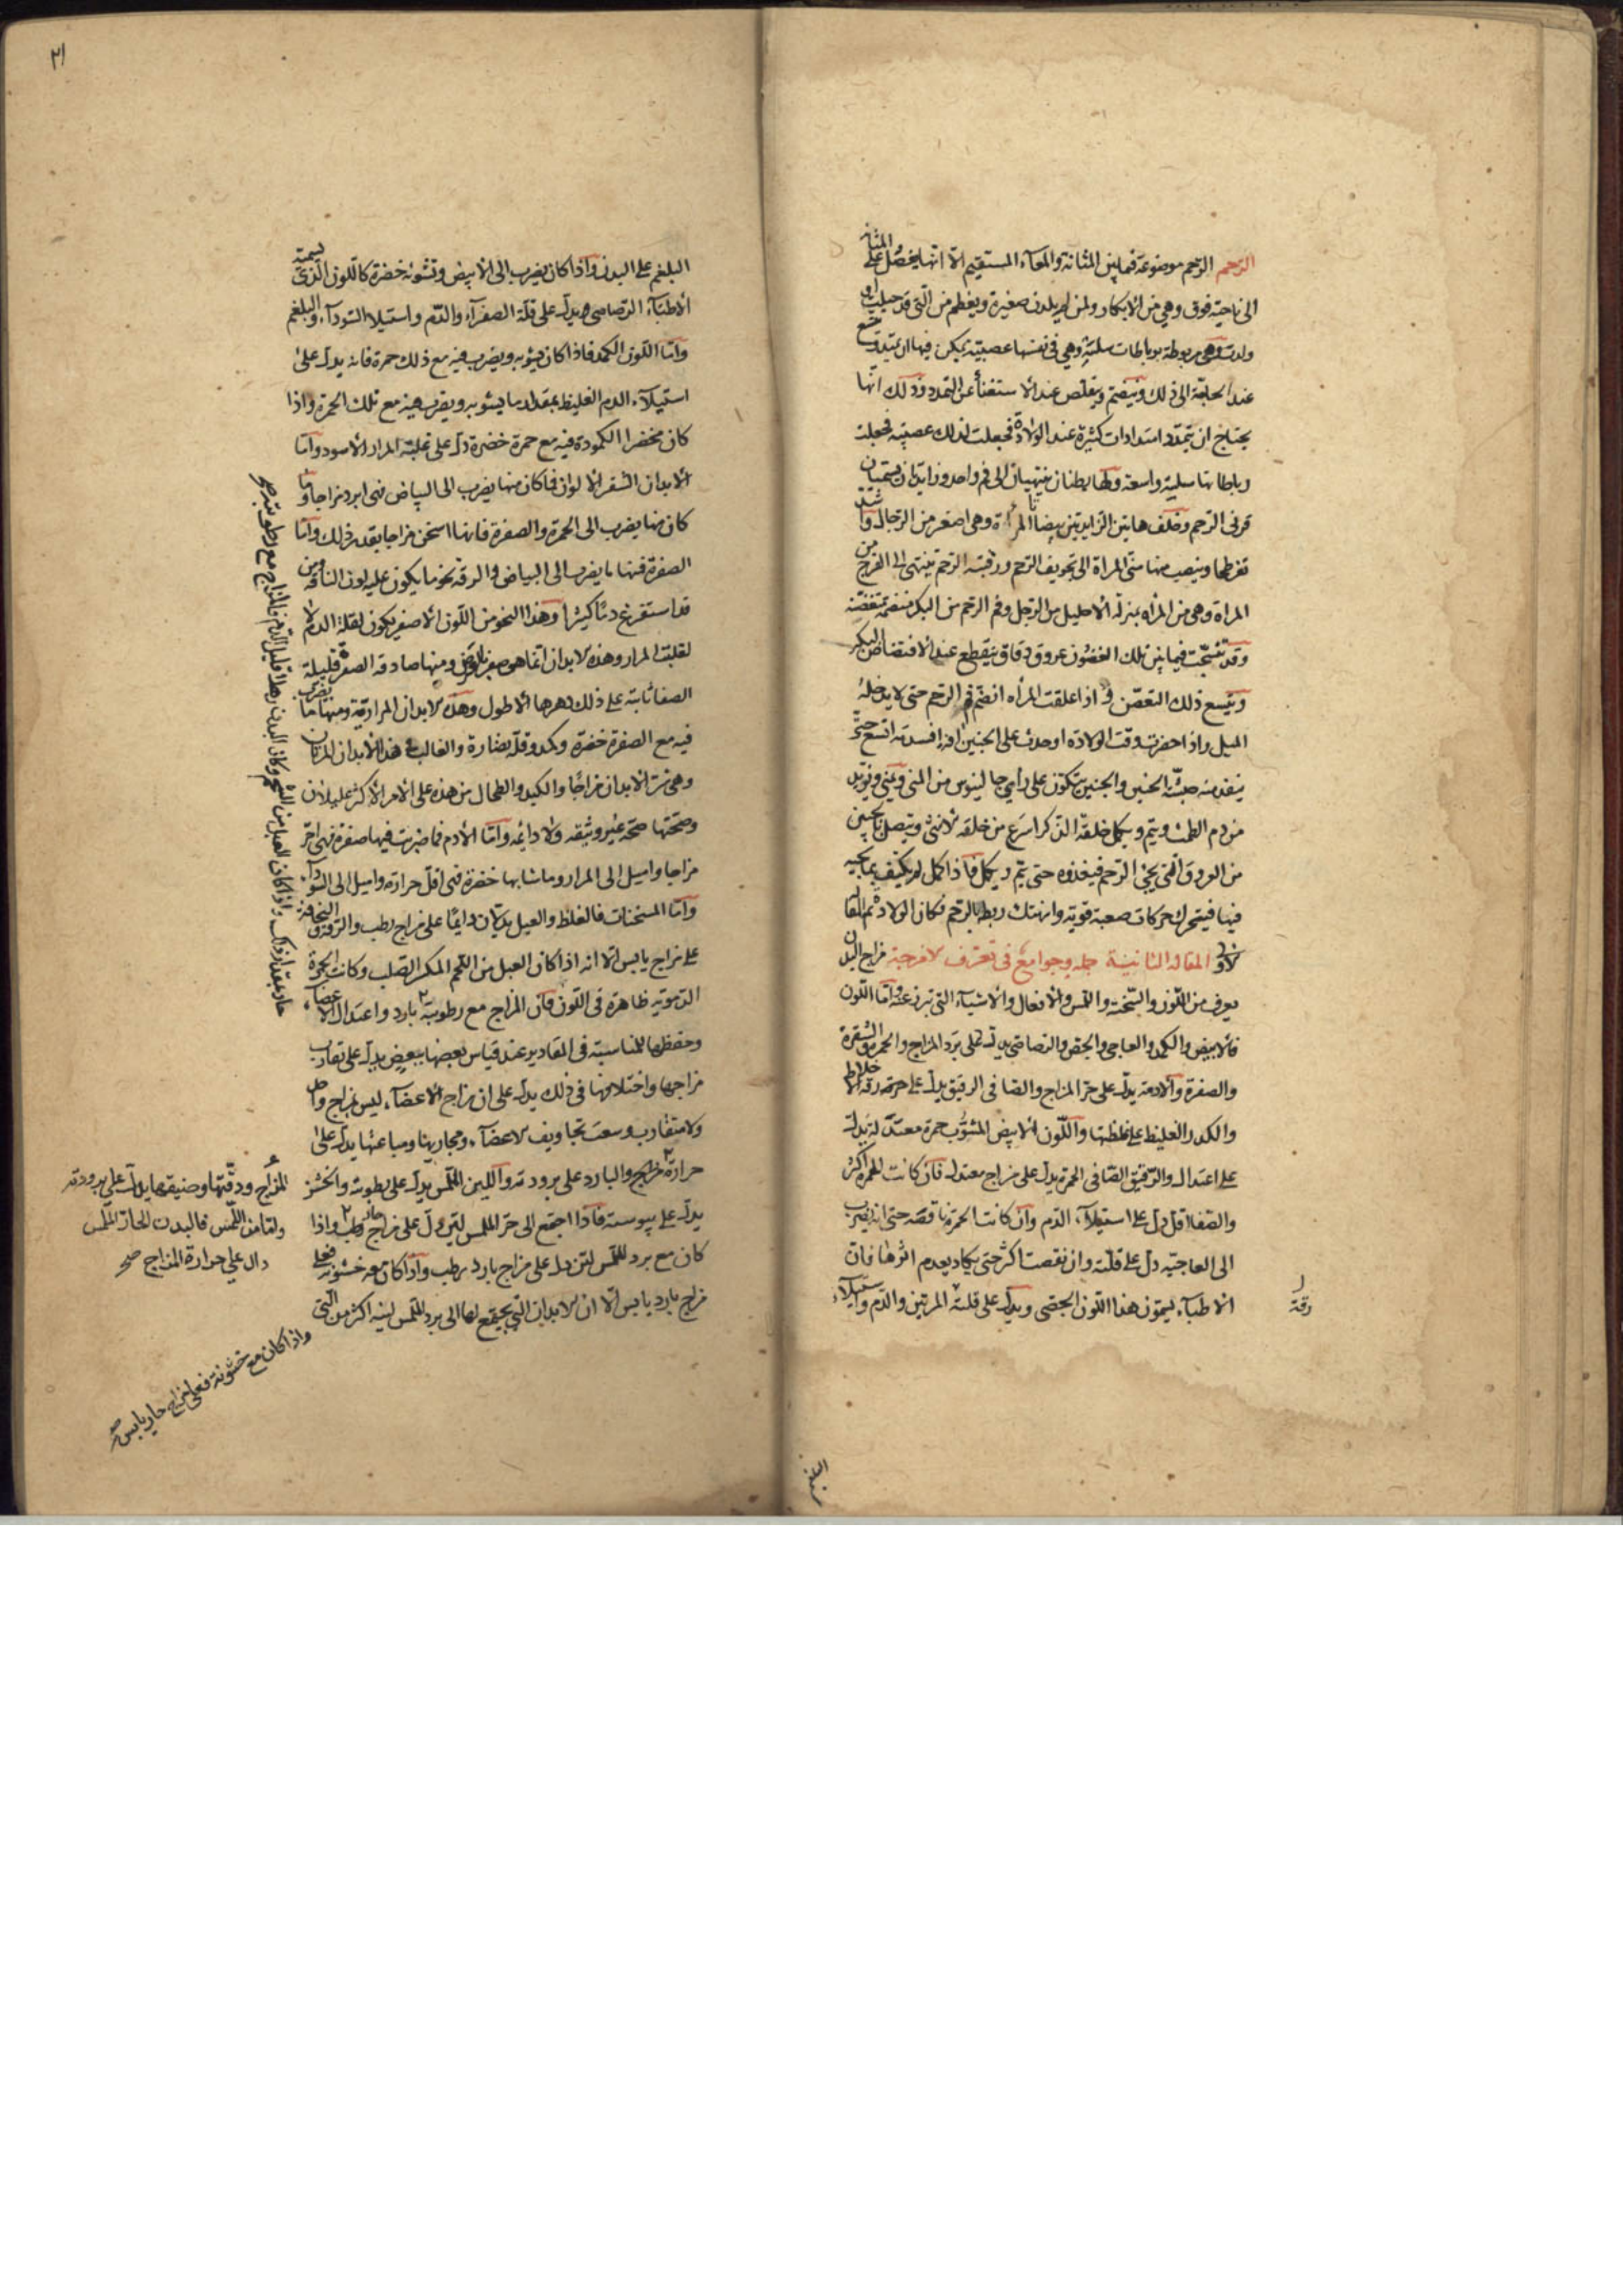 الرحم الرحم موضوعة فيما بين المثانة والمعاء المستقيم الا انها يفضل على المثانة
الى ناحية فوق وهي من الابكار ولمن لم يلدن صغيرة ويعظم من التي قد حبلت او
ولدت وهي مربوطة برباطات سلسة وهي في نفسها عصبية يمكن فيها ان يتمدد ويتسع
عند الحاجة الى ذلك وينضم ويتقلص عند الاستغناء عن التمدد وذلك انها
يحتاج ان يتمدد امتدادات كثيرة عند الولادة فجعلت لذلك عصبية فجعلت
رباطاتها سلسة واسعة ولها بطنان ينتهيان الى فم واحد وزايدتان يسميان
قرنى الرحم وخلف هاتين الزايدتين بيضتا المراة وهى اصغر من الرجال واشد
تفرطحا وينصب منها منى المراة الى تجويف الرحم ورقبة الرحم ينتهى الى الفرج من
المراة وهى من المراه بمنزلة الاحليل من الرجل وفم الرحم من البكر منضمة متغضنة
وقد نسجت فيما بين تلك الغضون عروق دقاق ينقطع عند الافتضاض البكر
ويتسع ذلك التغضن واذا علقت المراه انضم فم الرحم حتى لا يدخله
الميل واذا حضرت وقت الولاده او حدث على الجنين افة افسدته اتسع حتى
ينفد منه جثة الجنين والجنين يتكون على راى جالينوس من المنى ويمنى ويزيد
من دم الطمث ويتم ويكمل خلقة الذكر اسرع من خلقة الانثى ويتصل بالجنين
من العروق التى يجئ الرحم فيغذوه حتى يتم ويكمل فاذا كمل لم يكتف بما يجيه
فيها فيتحرك حركات صعبة قوية وانهتك ربط بالرحم فكان الولادة تم المقالة
الاولى المقاله الثانية جمله وجوامع فى تعرف الامزجة مزاج البدن
يعرف من اللون والسحنة واللمس والافعال والاشياء التى تبرز عنه واما اللون
فالابيض والكمد والعاجى والجصى والرصاصى يدل على برد المزاج والحمرة والشقرة
والصفرة والادمة يدل على حر المزاج والصافى الرقيق يدل على حرقة رقة الاخلاط
والكدر الغليظ على غلظها واللون الابيض المشوب حمرة معتدلة يدل
على اعتدال والرقيق الصافى الحمرة يدل على مزاج معتدل فان كانت الحمرة اكثر
والصفا اقل دل على استيلاء الدم وان كانت الحمرة ناقصة حتى انه يضرب
الى العاجية دل على قلته وان نقصت اكثر حتى يكاد يعدم اثرها فان
الاطباء يسمون هذا اللون الجصى ويدل على قلة المرتين والدم واستيلاء
رقة
البلغم
٢١
البلغم على البدن واذا كان يضرب الى الابيض وتشوبه خضرة كاللون الذى يسميه
الاطباء الرصاصى يدل على قلة الصفراء والدم واستيلا السوداء والبلغم
واما اللون الكمد فاذا كان يشوبه ويضرب فيه مع ذلك حمرة فانه يدل على
استيلاء الدم الغليظ بمقدار ما يشوبه ويضرب فيه مع تلك الحمرة واذا
كان مخضرا الكمودة فيه مع حمرة خضرة دل على غلبة المرار الاسود واما
الابدان الشقر الالوان فما كان منها يضرب الى البياض فهى ابرد مزاجا وما
كان منها يضرب الى الحمرة والصفرة فانها اسخن مزاجا بقدر ذلك واما
الصفرة فمنها ما يضرب الى البياض والرقة نحو ما يكون عليه لون الناقه ومن
قد استفرغ دما كثيرا وهذا النحو من اللون الاصفر يكون لقلة الدم لا
لغلبة المرار وهذه الابدان انما هى صفر بالعرض ومنها صادقة الصفرة قليلة
الصفا ثابتة على ذلك دهرها الاطول وهذه الابدان المرارية ومنها ما يضرب
فيه مع الصفرة خضرة وكمد وقلة نضارة والغالب على هذه الابدان المرتان
وهى شر الابدان مزاجا والكبد والطحال من هذه على الامر الاكثر عليلان
وصحتها صحة غير وثيقه ولا دائمه واما الادم فما ضربت فيها صفرة فهى احر
مزاجا واميل الى المرار وما شابها خضرة فهى اقل حرارة واميل الى السوداء
واما السحنات فالغلظ والعبل يدلان دايما على مزاج رطب والرقة والنحافة
على مزاج يابس الا انه اذا كان العبل من اللحم المكتنز الصلب وكانت الحمرة
الدموية ظاهرة فى اللون فان المزاج مع رطوبته بارد واعتدال الاعضاء
وحفظها للمناسبة فى المقادير عند قياس بعضها ببعض يدل على تقارب
مزاجها واختلافها فى ذلك يدل على ان مزاج الاعضاء ليس بمزاج واحد
ولا متقارب وسعت تجاويف الاعضاء ومجاريها ومباعثها يدل على
حرارة المزاج والبارد على برودته واللين الملمس يدل على رطوبته والخشن
يدل على يبوسته فاذا اجتمع الى حر الملمس لين دل على مزاج حار رطب واذا
كان مع برد الملمس لين دل على مزاج بارد رطب واذا كان معه خشونة فعلى
مزاج بارد يابس الا ان الابدان التى يجتمع لها الى برد الملمس لينه اكثر من التى
حار بمقدار ذلك واذا كان العبل من الشحم وكان البدن رهلا قليل الدم فالمزاج مع رطوبته صح
المزاج ودقتها وضيقها يدل على برودته
واما من اللمس فالبدن الحار اللمس
دال على حرارة المزاج صح
واذا كان مع خشونة فعلى مزاج حار يابس صح